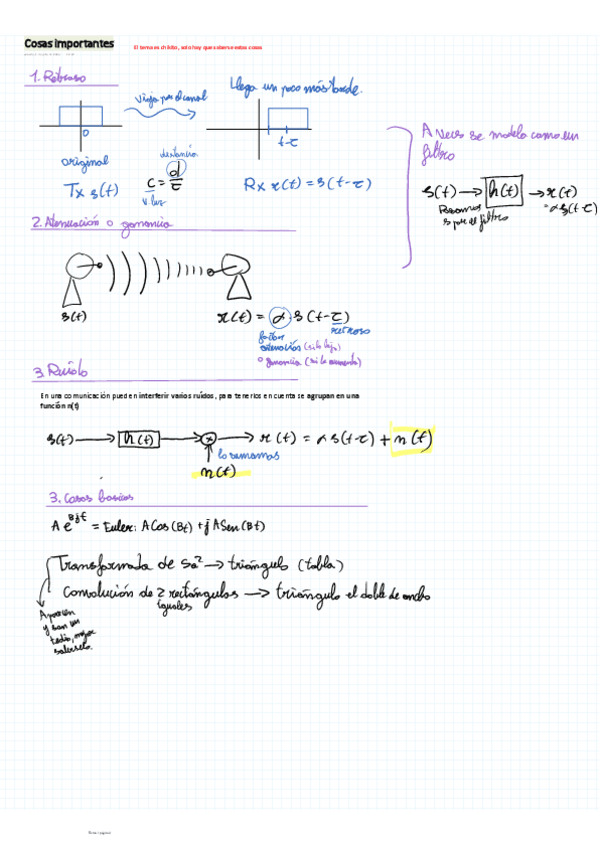 Cosas importantes
El tema es chikito, solo hay que saberse estas cosas
1. Retraso
viaja por el canal
llega un poco más tarde.
0
t-τ
original
distancia
Tx s(t)
c = d/τ
v. luz
Rx r(t) = s(t-τ)
A veces se modela como un
filtro
s(t) → h(t) → r(t)
= α s(t-τ)
Pasamos
s por el filtro
2. Atenuación o ganancia
s(t)
r(t) = α · s(t-τ)
factor
retraso
atenuación (si lo baja)
o ganancia (si lo aumenta)
3. Ruido
En una comunicación pueden interferir varios ruidos, para tenerlos en cuenta se agrupan en una
función n(t)
s(t) → h(t) → + → r(t) = α s(t-τ) + n(t)
lo sumamos
n(t)
3. Cosas basicas
A e^Bjt = Euler: A Cos(Bt) + j A Sen(Bt)
Transformada de Sa² → triángulo (tabla)
Convolución de 2 rectángulos → triángulo el doble de ancho
iguales
Aparecen
y son un
tedio, mejor
saberselo.